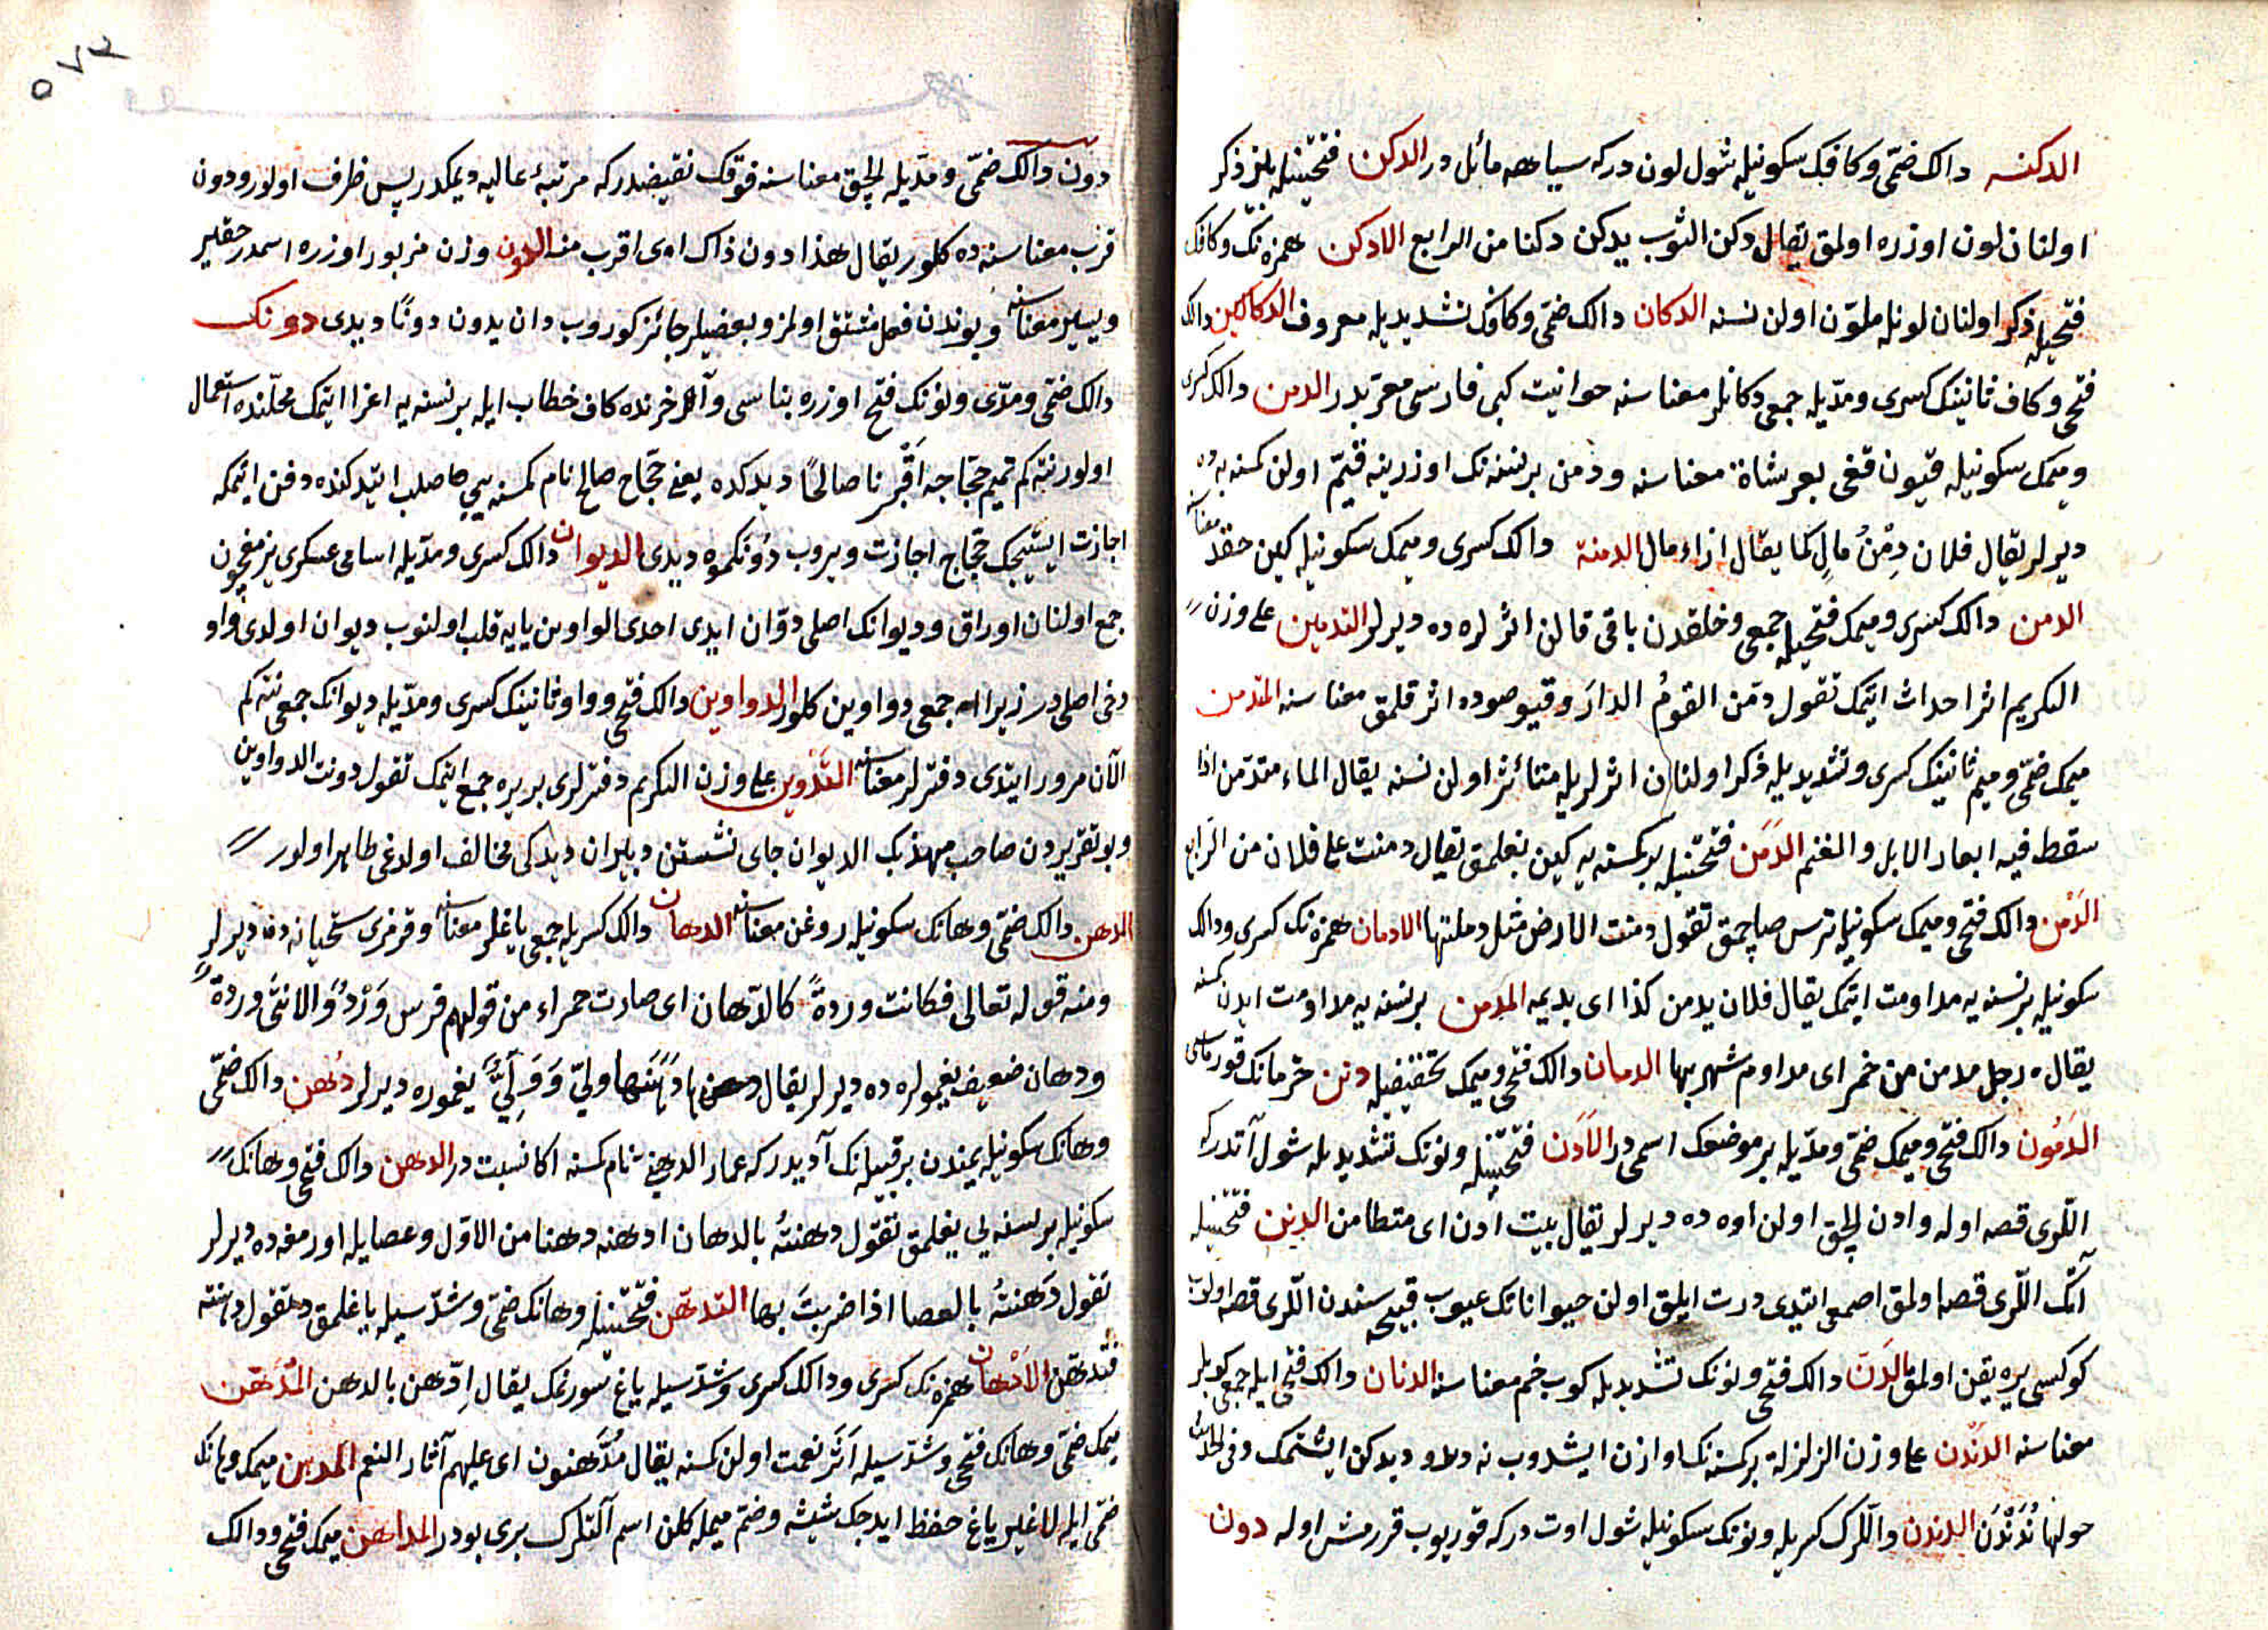 الدكنه دالك ضمّى وكافك سكونيله شول لون دركه سياهه مائل در الدكن فتحتينله بلنز ذكر
اولنان لون اوزره اولمق يقال دكن الثوب يدكن دكنا من الرابع الادكن همزه نك وكافك
فتحيله ذكر اولنان لونله ملوّن اولن نسنه الدكان دالك ضمّى وكافك تشديديله معروف الدكاكين دالك
فتحى وكاف ثانينك كسرى ومدّيله جمعى دكانلر معناسنه حوانيت كبى فارسى معرّبدر الدمن دالك كسرى
وميمك سكونيله قيون قغى بعر شاة معناسنه ودمن برنسنه نك اوزرينه قيّم اولن كمسنه يه ده
ديرلر يقال فلان دِمْنُ مالٍ كما يقال ازاء مال الدمنة دالك كسرى وميمك سكونيله كين حقد معناسنه
الدمن دالك كسرى وميمك فتحيله جمعى وخلقدن باقى قالن اثرلره ده ديرلر التدمين على وزن
التكريم اثر احداث ايتمك تقول دمّن القومُ الدارَ وقيو صوده اثر قلمق معناسنه المتدمن
ميمك ضمّى وميم ثانينك كسرى وتشديديله ذكر اولنان اثرلريله متأثر اولن نسنه يقال الماء متدمّن اذا
سقط فيه ابعار الابل والغنم الدَمَن فتحتينله بر كمسنه يه كين بغلمق يقال دمنت على فلان من الرابع
الدَمْن دالك فتحى وميمك سكونيله ترس صاچمق تقول دمنت الارض مثل دملتها الادمان همزه نك كسرى ودالك
سكونيله برنسنه يه مداومت ايتمك يقال فلان يدمن كذا اى يديمه المدمن برنسنه يه مداومت ايدن كمسنه
يقال رجل مدمن من خمر اى مداوم شربها الدمان دالك فتحى وميمك تخفيفيله دنن خرمانك قوريماسى
الدَمُون دالك فتحى وميمك ضمّى ومدّيله بر موضعك اسمى در الاَدَن فتحتينله ونونك تشديديله شول آتدركه
اللرى قصه اوله وادن الچق اولن اوه ده ديرلر يقال بيت ادن اى متطامن الدنن فتحتينله
آتك اللرى قصه اولمق اصمعى ايتدى درت ايلق اولن حيواناتك عيوب قبيحه سندن اللرى قصه اولوب
كوكسى يره يقين اولمق الدَنّ دالك فتحى ونونك تشديديله كوب خم معناسنه الدنان دالك فتحى ايله جمعى كوپلر
معناسنه الدَنْدَن على وزن الزلزلة بر كمسنه نك اوازن ايشدوب نه ديدوكن ايشتمك وفى الحديث
حولها نُدَنْدَن الدندن داللرك كسريله ونونك سكونيله شول اوت دركه قوريوب قررمش اوله دون
٥٧٢
دون دالك ضمّى ومدّيله الچق معناسنه فوقك نقيضيدركه مرتبۀ عاليه ديمكدر پس ظرف اولور ودون
قرب معناسنه ده كلور يقال هذا دون ذاك اى اقرب منه الدون وزن مزبور اوزره اسمدر حقير
ويسير معناسنه وبوندن فعل مشتق اولمز وبعضيلر جائز كوروب دان يدون دونًا ديدى دونك
دالك ضمّى ومدّى ونونك فتح اوزره بناسى وآخرنده كاف خطاب ايله برنسنه يه اغرا ايتمك محلّنده استعمال
اولور نته كم تميم حجّاجه اَقْبِرنا صالحًا ديدكده يعنى حجّاج صالح نام كمسنه يى صلب ايتدكنده دفن ايتمكه
اجازت ايستيجك حجّاج اجازت ويروب دُونَكموه ديدى الديوان دالك كسرى ومدّيله اسامى عسكرى يزمغيچون
جمع اولنان اوراق وديوانك اصلى دوّان ايدى احدى الواوين يايه قلب اولنوب ديوان اولدى واو
دخى اصلى در زيرا جمعى دواوين كلور الدواوين دالك فتحى وواو ثانينك كسرى ومدّيله ديوانك جمعى نته كم
الآن مرور ايتدى دفترلر معناسنه التدْوين على وزن التكريم دفترلرى بر يره جمع ايتمك تقول دونت الدواوين
وبو تقريردن صاحب مهذبك الديوان جاى نشستن دبيران ديدكى مخالف اولدغى ظاهر اولور
الدهن دالك ضمّى وهانك سكونيله روغن معناسنه الدهان دالك كسريله جمعى ياغلر معناسنه وقرمزى سختيانه ده ديرلر
ومنه قوله تعالى فكانت وردةً كالدّهان اى صارت حمراء من قولهم فرس وَرْدٌ والانثى وردة
ودهان ضعيف يغمورلره ده ديرلر يقال دهنها وليّ يغموره ديرلر دُهْن دالك ضمّى
وهانك سكونيله يمندن بر قبيله نك آديدركه عمار الدهنى نام كمسنه اكا نسبت در الدهن دالك فتحى وهانك
سكونيله برنسنه يى يغلمق تقول دهنتُه بالدهان ادهنه دهنا من الاوّل وعصا ايله اورمغه ده ديرلر
تقول دَهَنتُه بالعصا اذا ضربتَ بها التدهّن فتحتينله وهانك ضمّى وشدّسيله ياغلمق تقول دهنته
فتدهّن الادّهان همزه نك كسرى ودالك كسرى وشدّسيله ياغ سورنمك يقال اِدّهن بالدهن المُدَهّن
ميمك ضمّى وهانك فتحى وشدّسيله اثر نعمت اولن كمسنه يقال مُدَّهنون اى عليهم آثار النعم المدهن ميمك وهانك
ضمّى ايله لا غير ياغ حفظ ايدجك شيشه وضمّ ميمله كلن اسم آلتلرك برى بودر المداهن ميمك فتحى ودالك